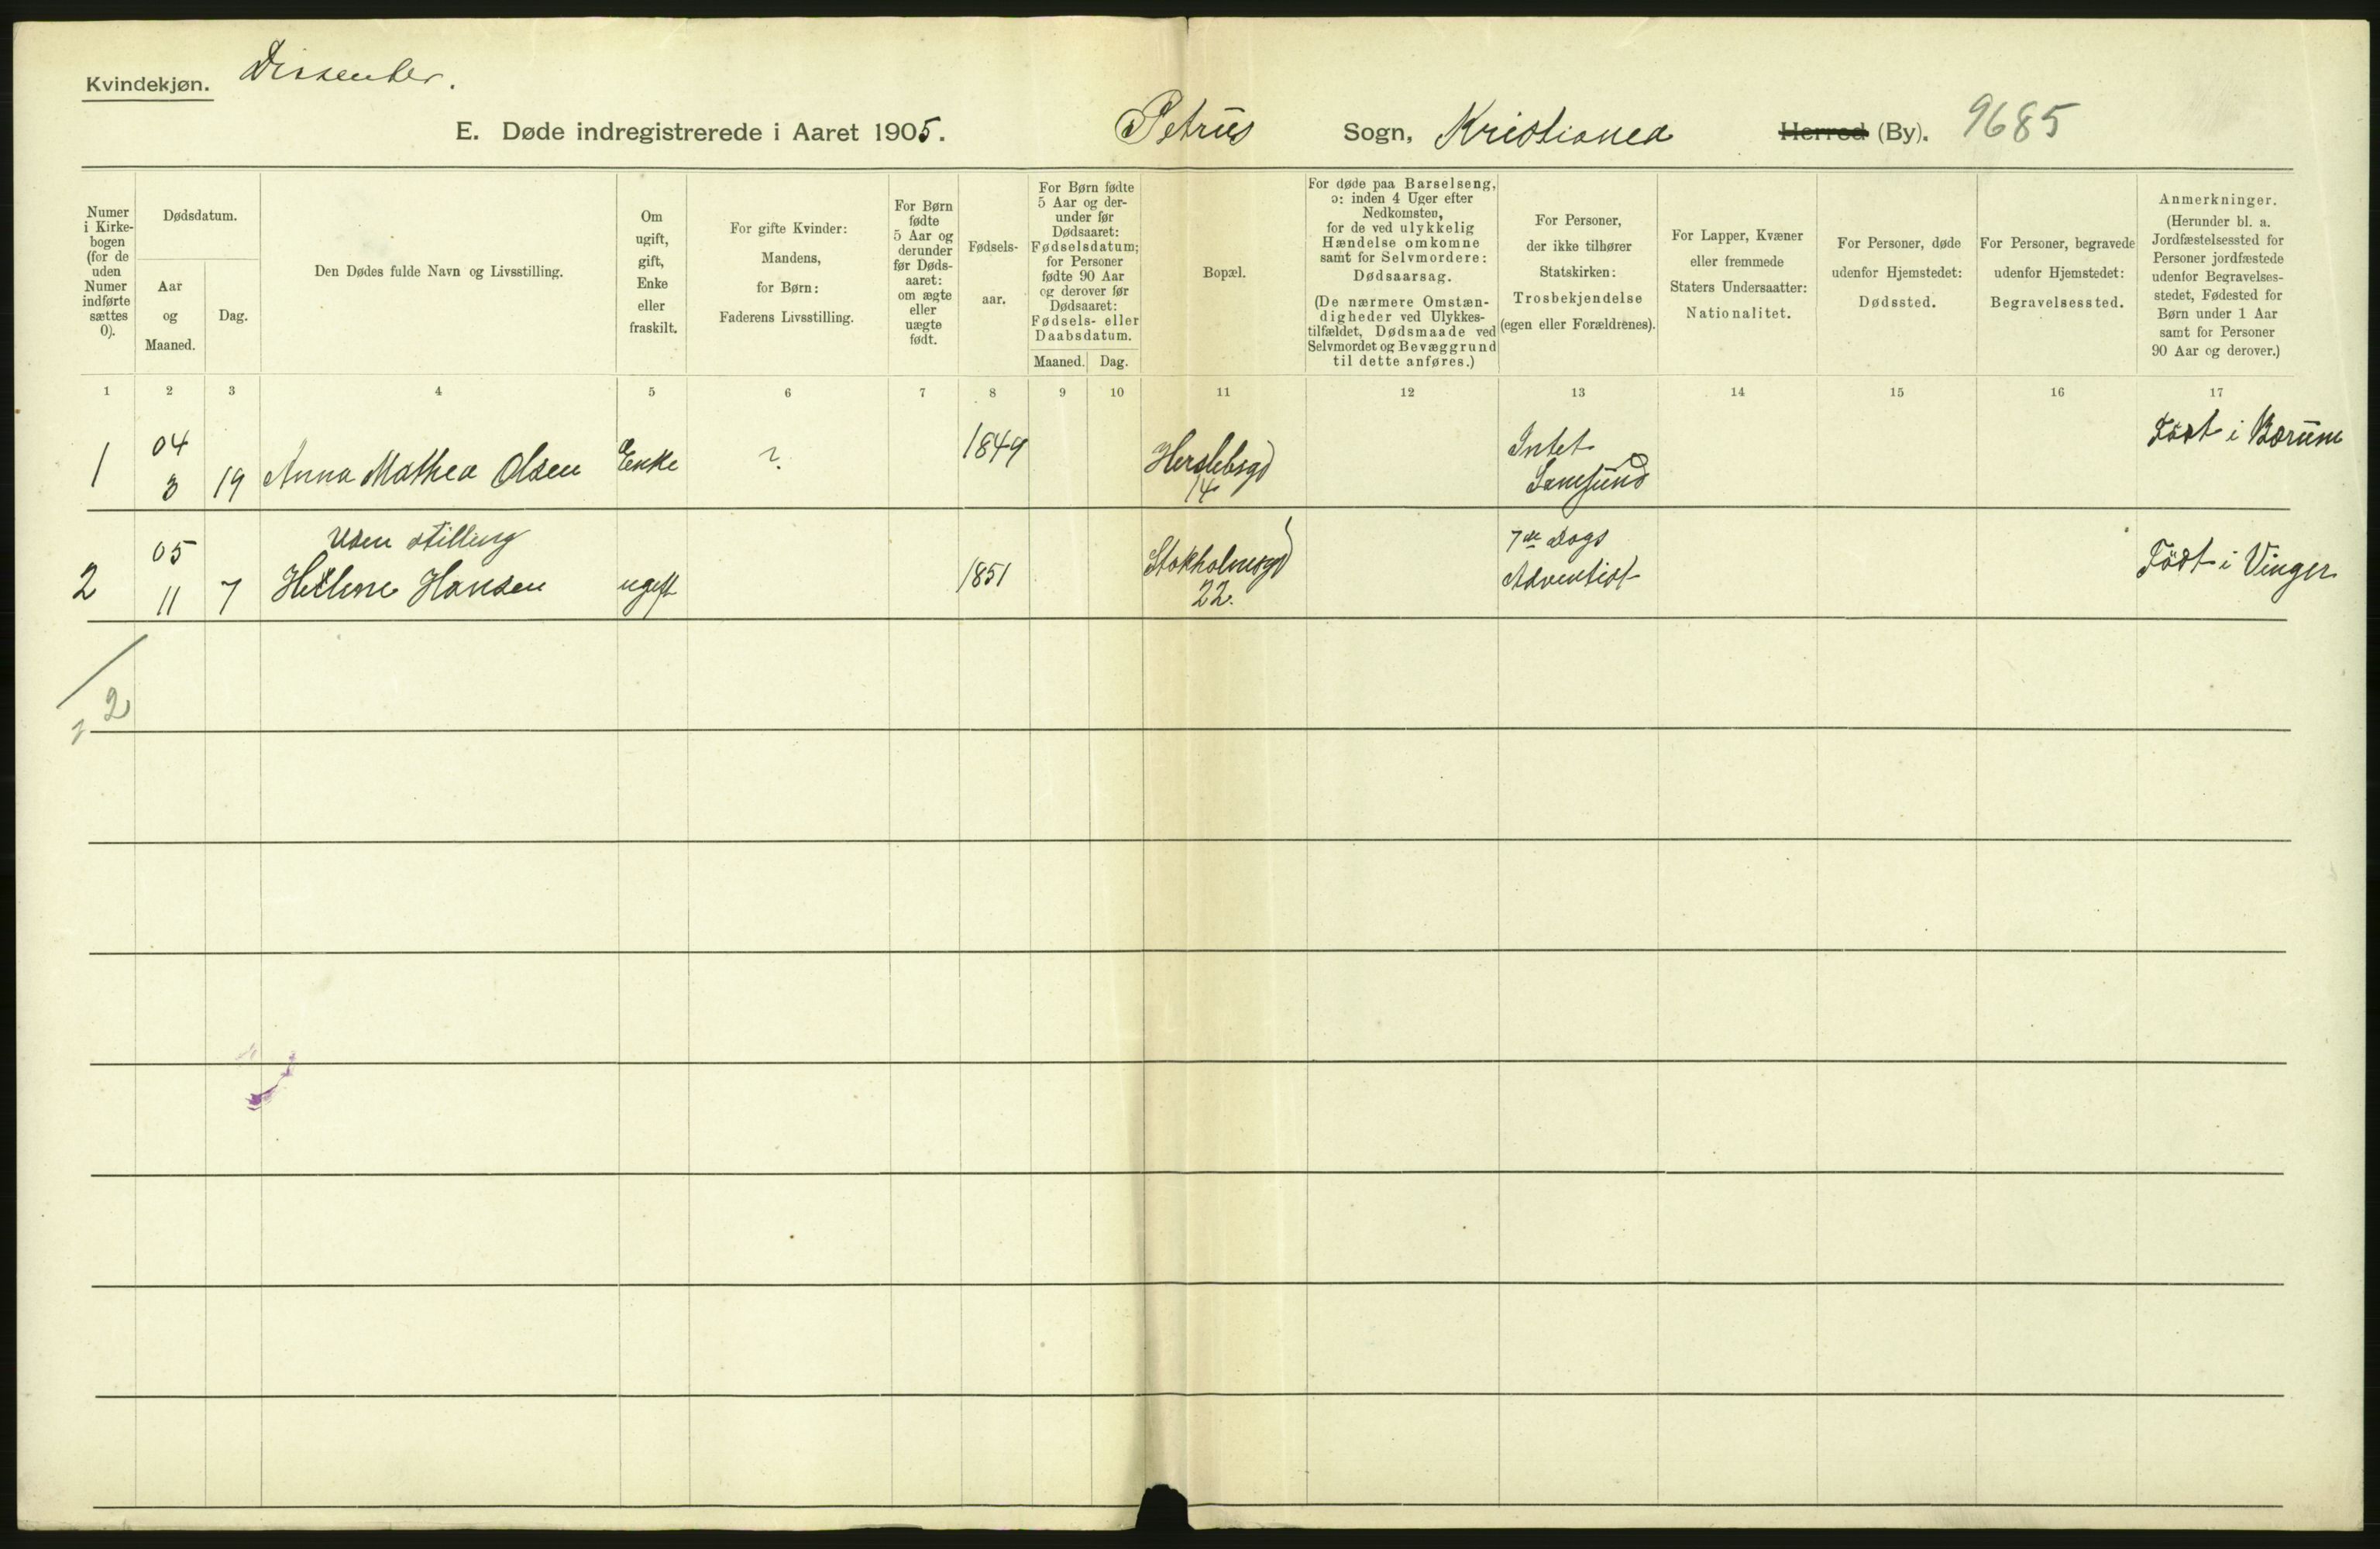 Kvindekjøn. Dissenter.
E. Døde indregistrerede i Aaret 1905. Petrus Sogn, Kristiania Herred (By). 9685
Numer i Kirkebogen (for de uden Numer indførte sættes 0).
Dødsdatum.
Aar og Maaned.
Dag.
Den Dødes fulde Navn og Livsstilling.
Om ugift, gift, Enke eller fraskilt.
For gifte Kvinder: Mandens, for Børn: Faderens Livsstilling.
For Børn fødte 5 Aar og derunder før Dødsaaret: om ægte eller uægte født.
Fødselsaar.
For Børn fødte 5 Aar og derunder før Dødsaaret: Fødselsdatum; for Personer fødte 90 Aar og derover før Dødsaaret: Fødsels- eller Daabsdatum.
Maaned. Dag.
Bopæl.
For døde paa Barselseng, ɔ: inden 4 Uger efter Nedkomsten, for de ved ulykkelig Hændelse omkomne samt for Selvmordere: Dødsaarsag.
(De nærmere Omstændigheder ved Ulykkestilfældet, Dødsmaade ved Selvmordet og Bevæggrund til dette anføres.)
For Personer, der ikke tilhører Statskirken: Trosbekjendelse (egen eller Forældrenes).
For Lapper, Kvæner eller fremmede Staters Undersaatter: Nationalitet.
For Personer, døde udenfor Hjemstedet: Dødssted.
For Personer, begravede udenfor Hjemstedet: Begravelsessted.
Anmerkninger.
(Herunder bl. a. Jordfæstelsessted for Personer jordfæstede udenfor Begravelsesstedet, Fødested for Børn under 1 Aar samt for Personer 90 Aar og derover.)
1 2 3 4 5 6 7 8 9 10 11 12 13 14 15 16 17
1 04 3 19 Anna Mathea Olsen Enke ? 1849 Herslebsgd 14 Intet Samfund Født i Bærum
2 05 11 7 Uden stilling Helene Hansen ugift 1851 Stokholmsgd 22. 7de Dags Adventist Født i Vinger
2